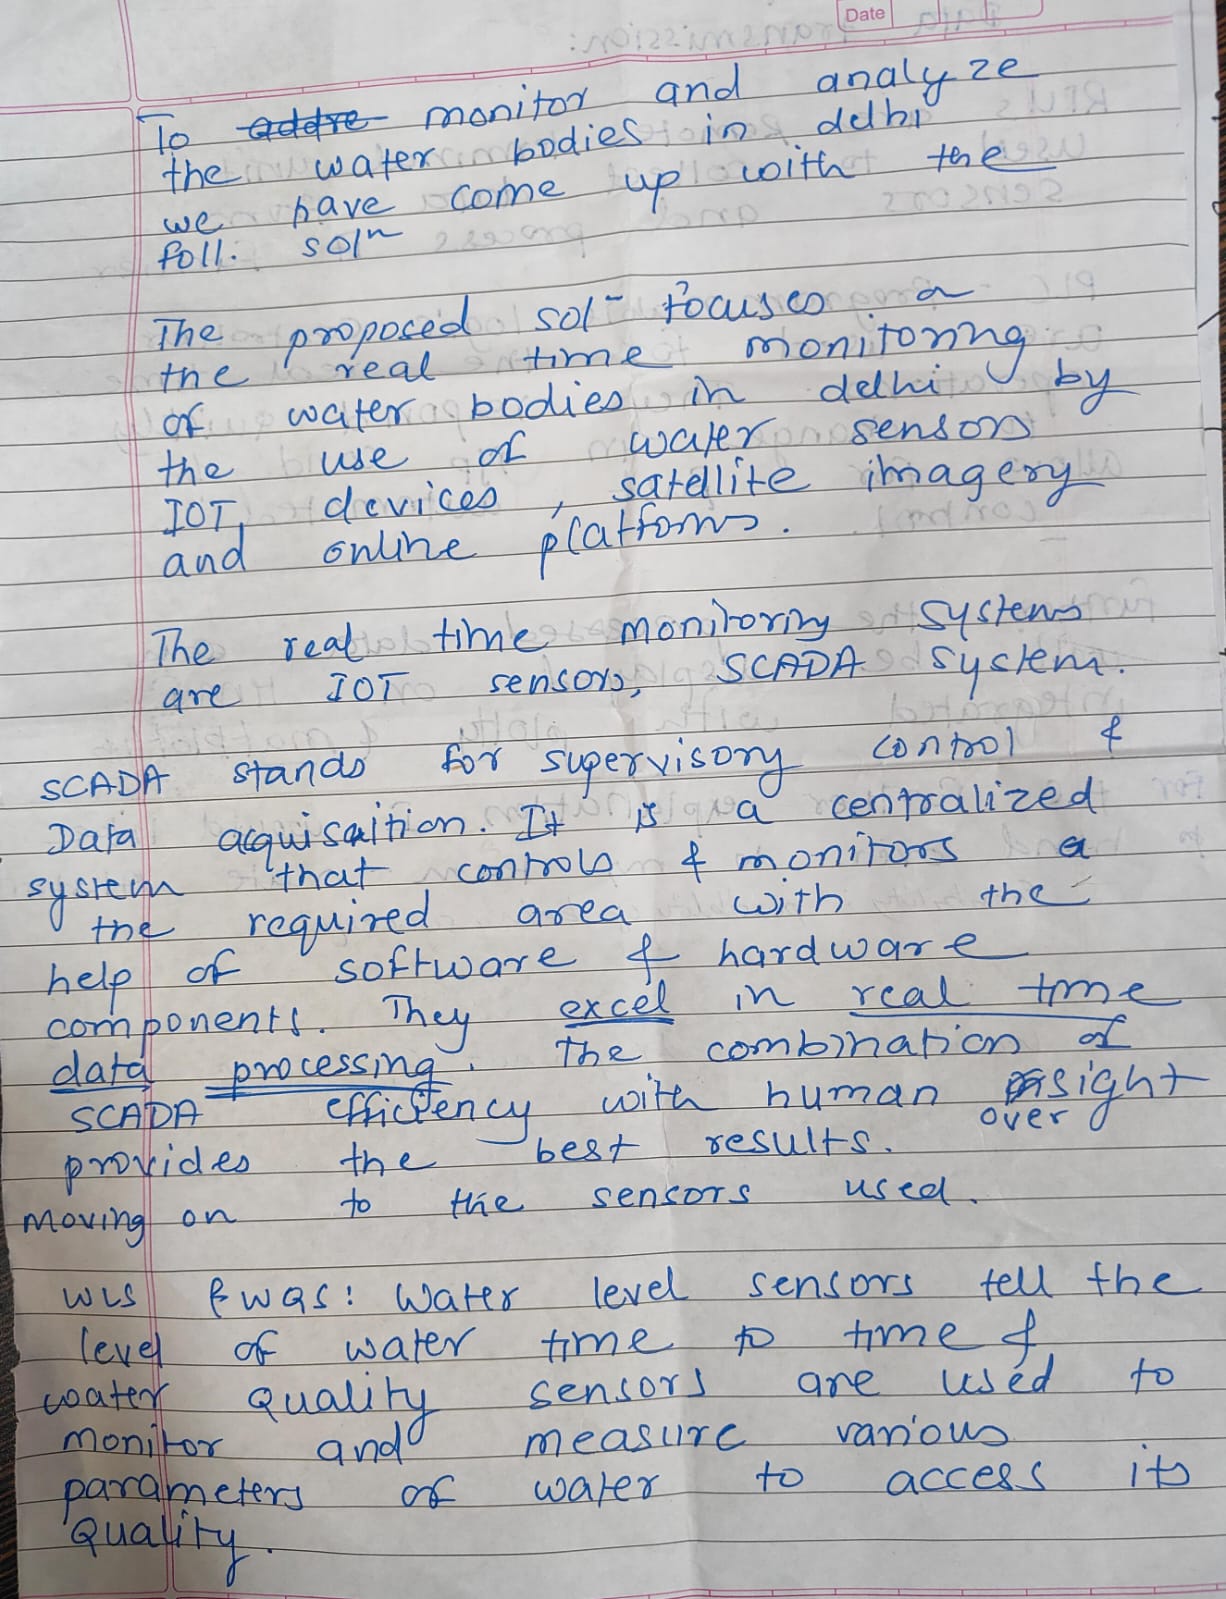 Date
To addre monitor and analyze
the water bodies in delhi
we have come up with the
foll. solⁿ
The proposed sol⁻ focuses o
the real time monitoring
of water bodies in delhi by
the use of water sensors
IOT, devices, satellite imagery
and online platforms.
The real time monitoring systems
are IOT sensors, SCADA system.
SCADA stands for supervisory control &
Data acquisaition. It is a centralized
system that controls & monitors a
the required area with the
help of software & hardware
components. They excel in real time
data processing. The combination of
SCADA efficiency with human sight
over
provides the best results.
Moving on to the sensors used.
WLS & WQS: Water level sensors tell the
level of water time to time &
water quality sensors are used to
monitor and measure various
parameters of water to access its
quality.